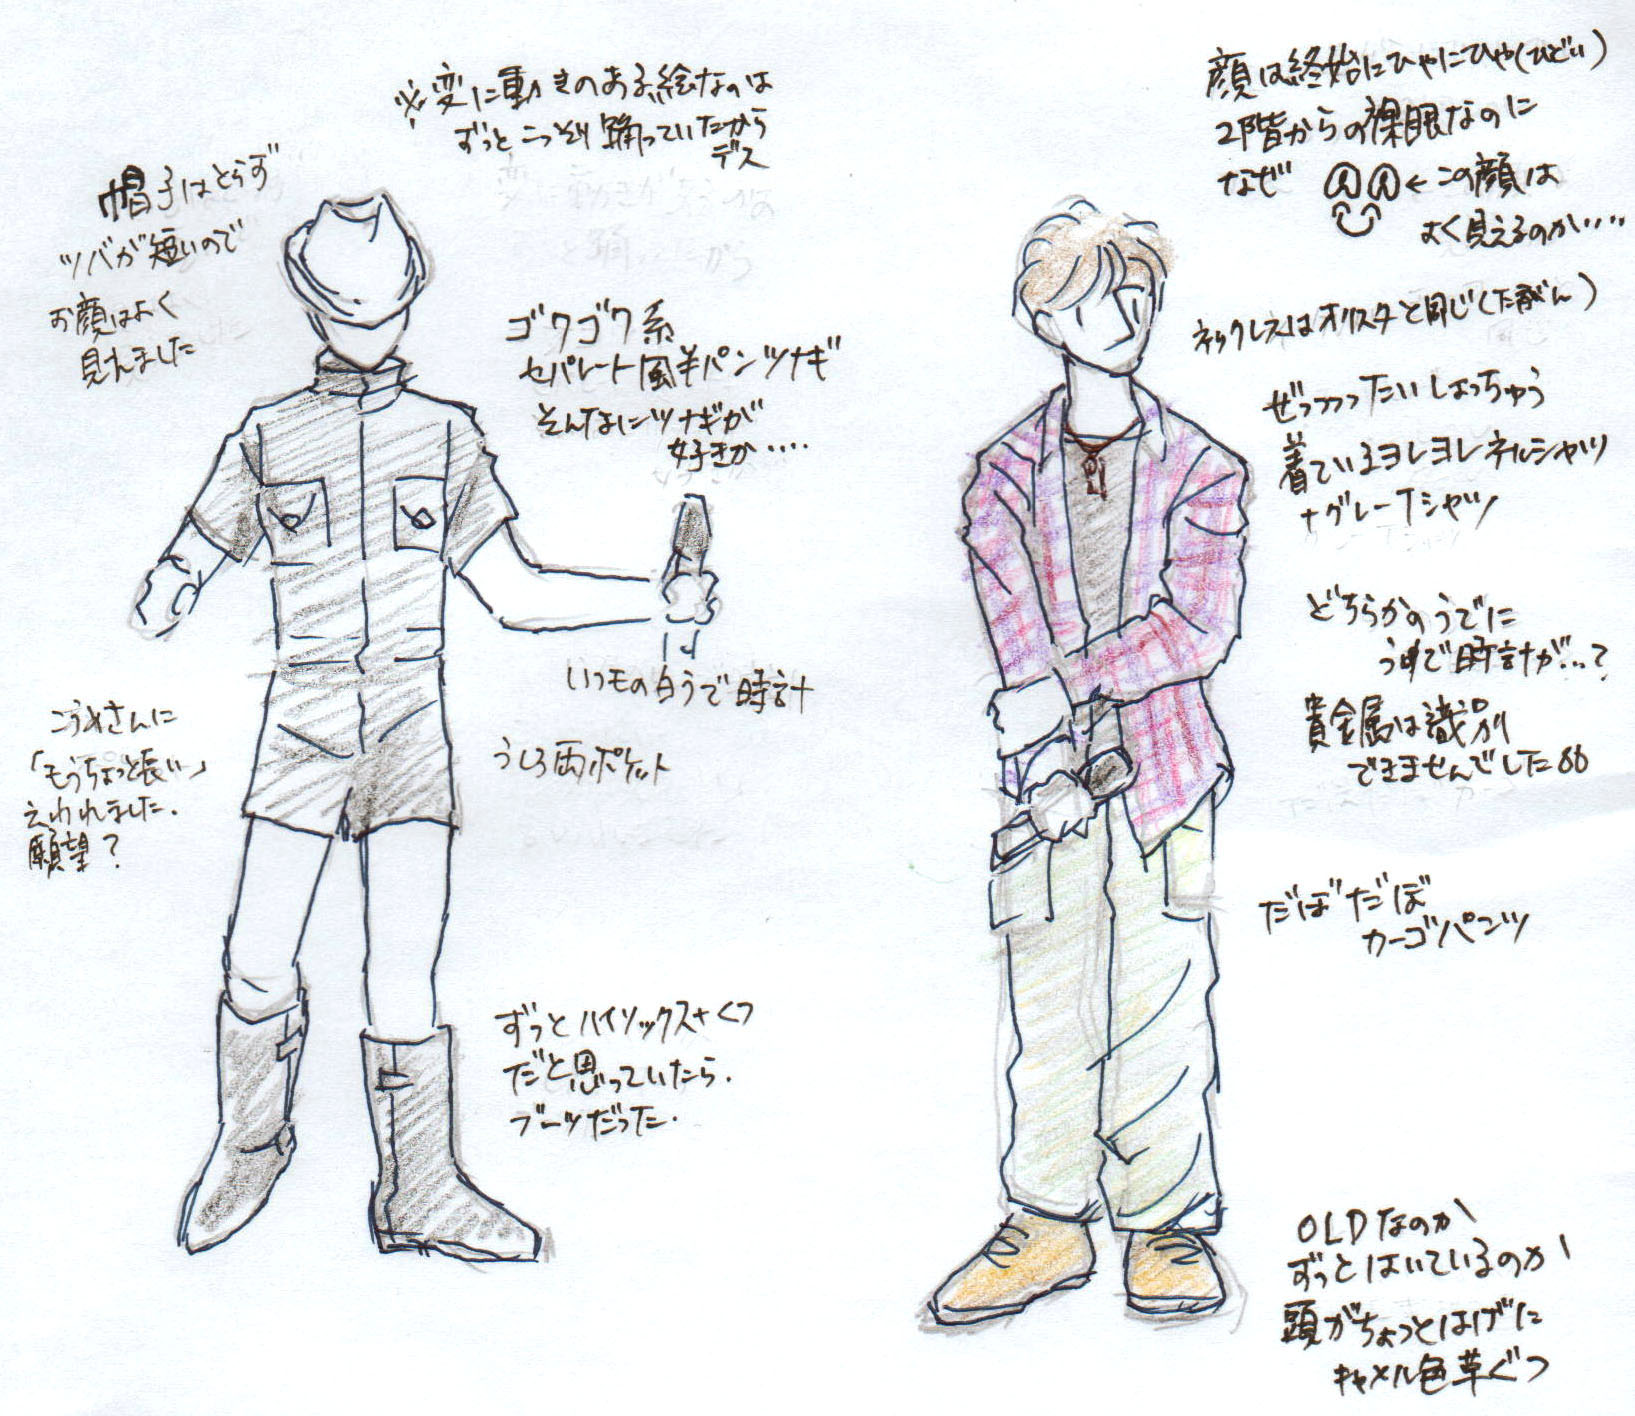 ※変に動きのある絵なのは
ずっとこっそり踊っていたから
デス
帽子はとらず
ツバが短いので
お顔はよく
見えました
ゴワゴワ系
セパレート風半パンツナギ
そんなにツナギが
好きか‥‥
いつもの白うで時計
こうめさんに
「もうちょっと長い」
言われました.
願望?
うしろ両ポケット
ずっとハイソックス+くつ
だと思っていたら.
ブーツだった.
顔は終始にひゃにひゃ(ひどい)
2階からの裸眼なのに
なぜ ←この顔は
よく見えるのか‥‥
ネックレスはオリスタと同じ(たぶん)
ぜっつつったいしょっちゅう
着ているヨレヨレネルシャツ
+グレーTシャツ
どちらかのうでに
うで時計が…?
貴金属は識別
できませんでした
だぼだぼ
カーゴパンツ
OLDなのか、
ずっとはいているのか、
頭がちょっとはげに
キャメル色革ぐつ